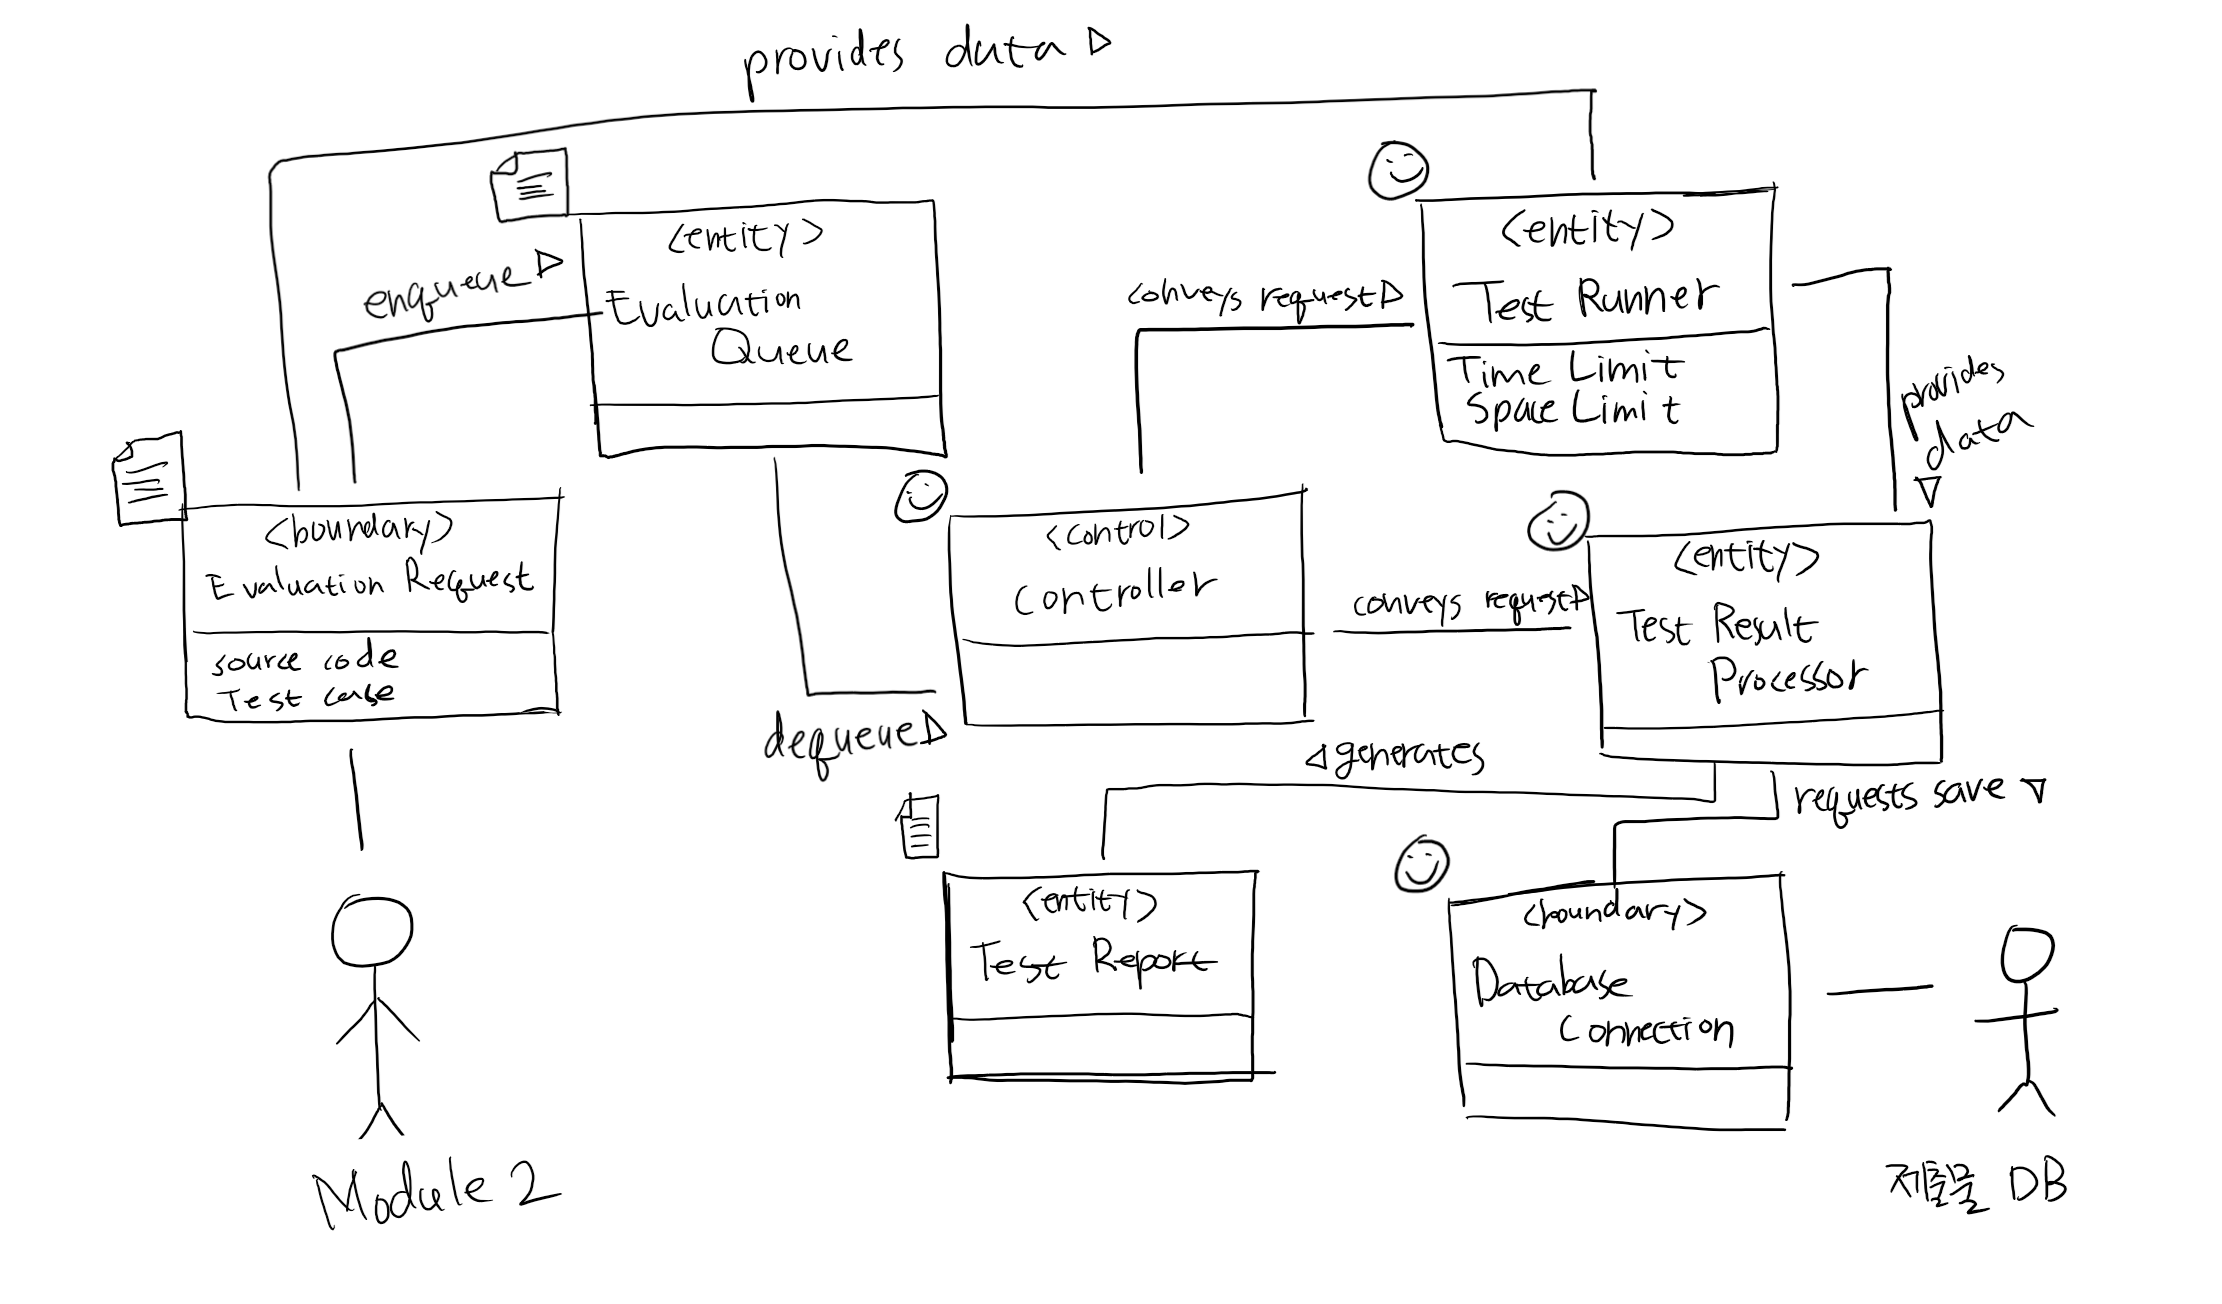 provides data ▷
<entity>
Evaluation
Queue
enqueue ▷
<entity>
Test Runner
Time Limit
Space Limit
conveys request ▷
provides
data
▽
<boundary>
Evaluation Request
source code
Test case
<control>
Controller
dequeue ▷
conveys request ▷
<entity>
Test Result
Processor
◁ generates
requests save ▽
<entity>
Test Report
<boundary>
Database
Connection
Module 2
제출물 DB